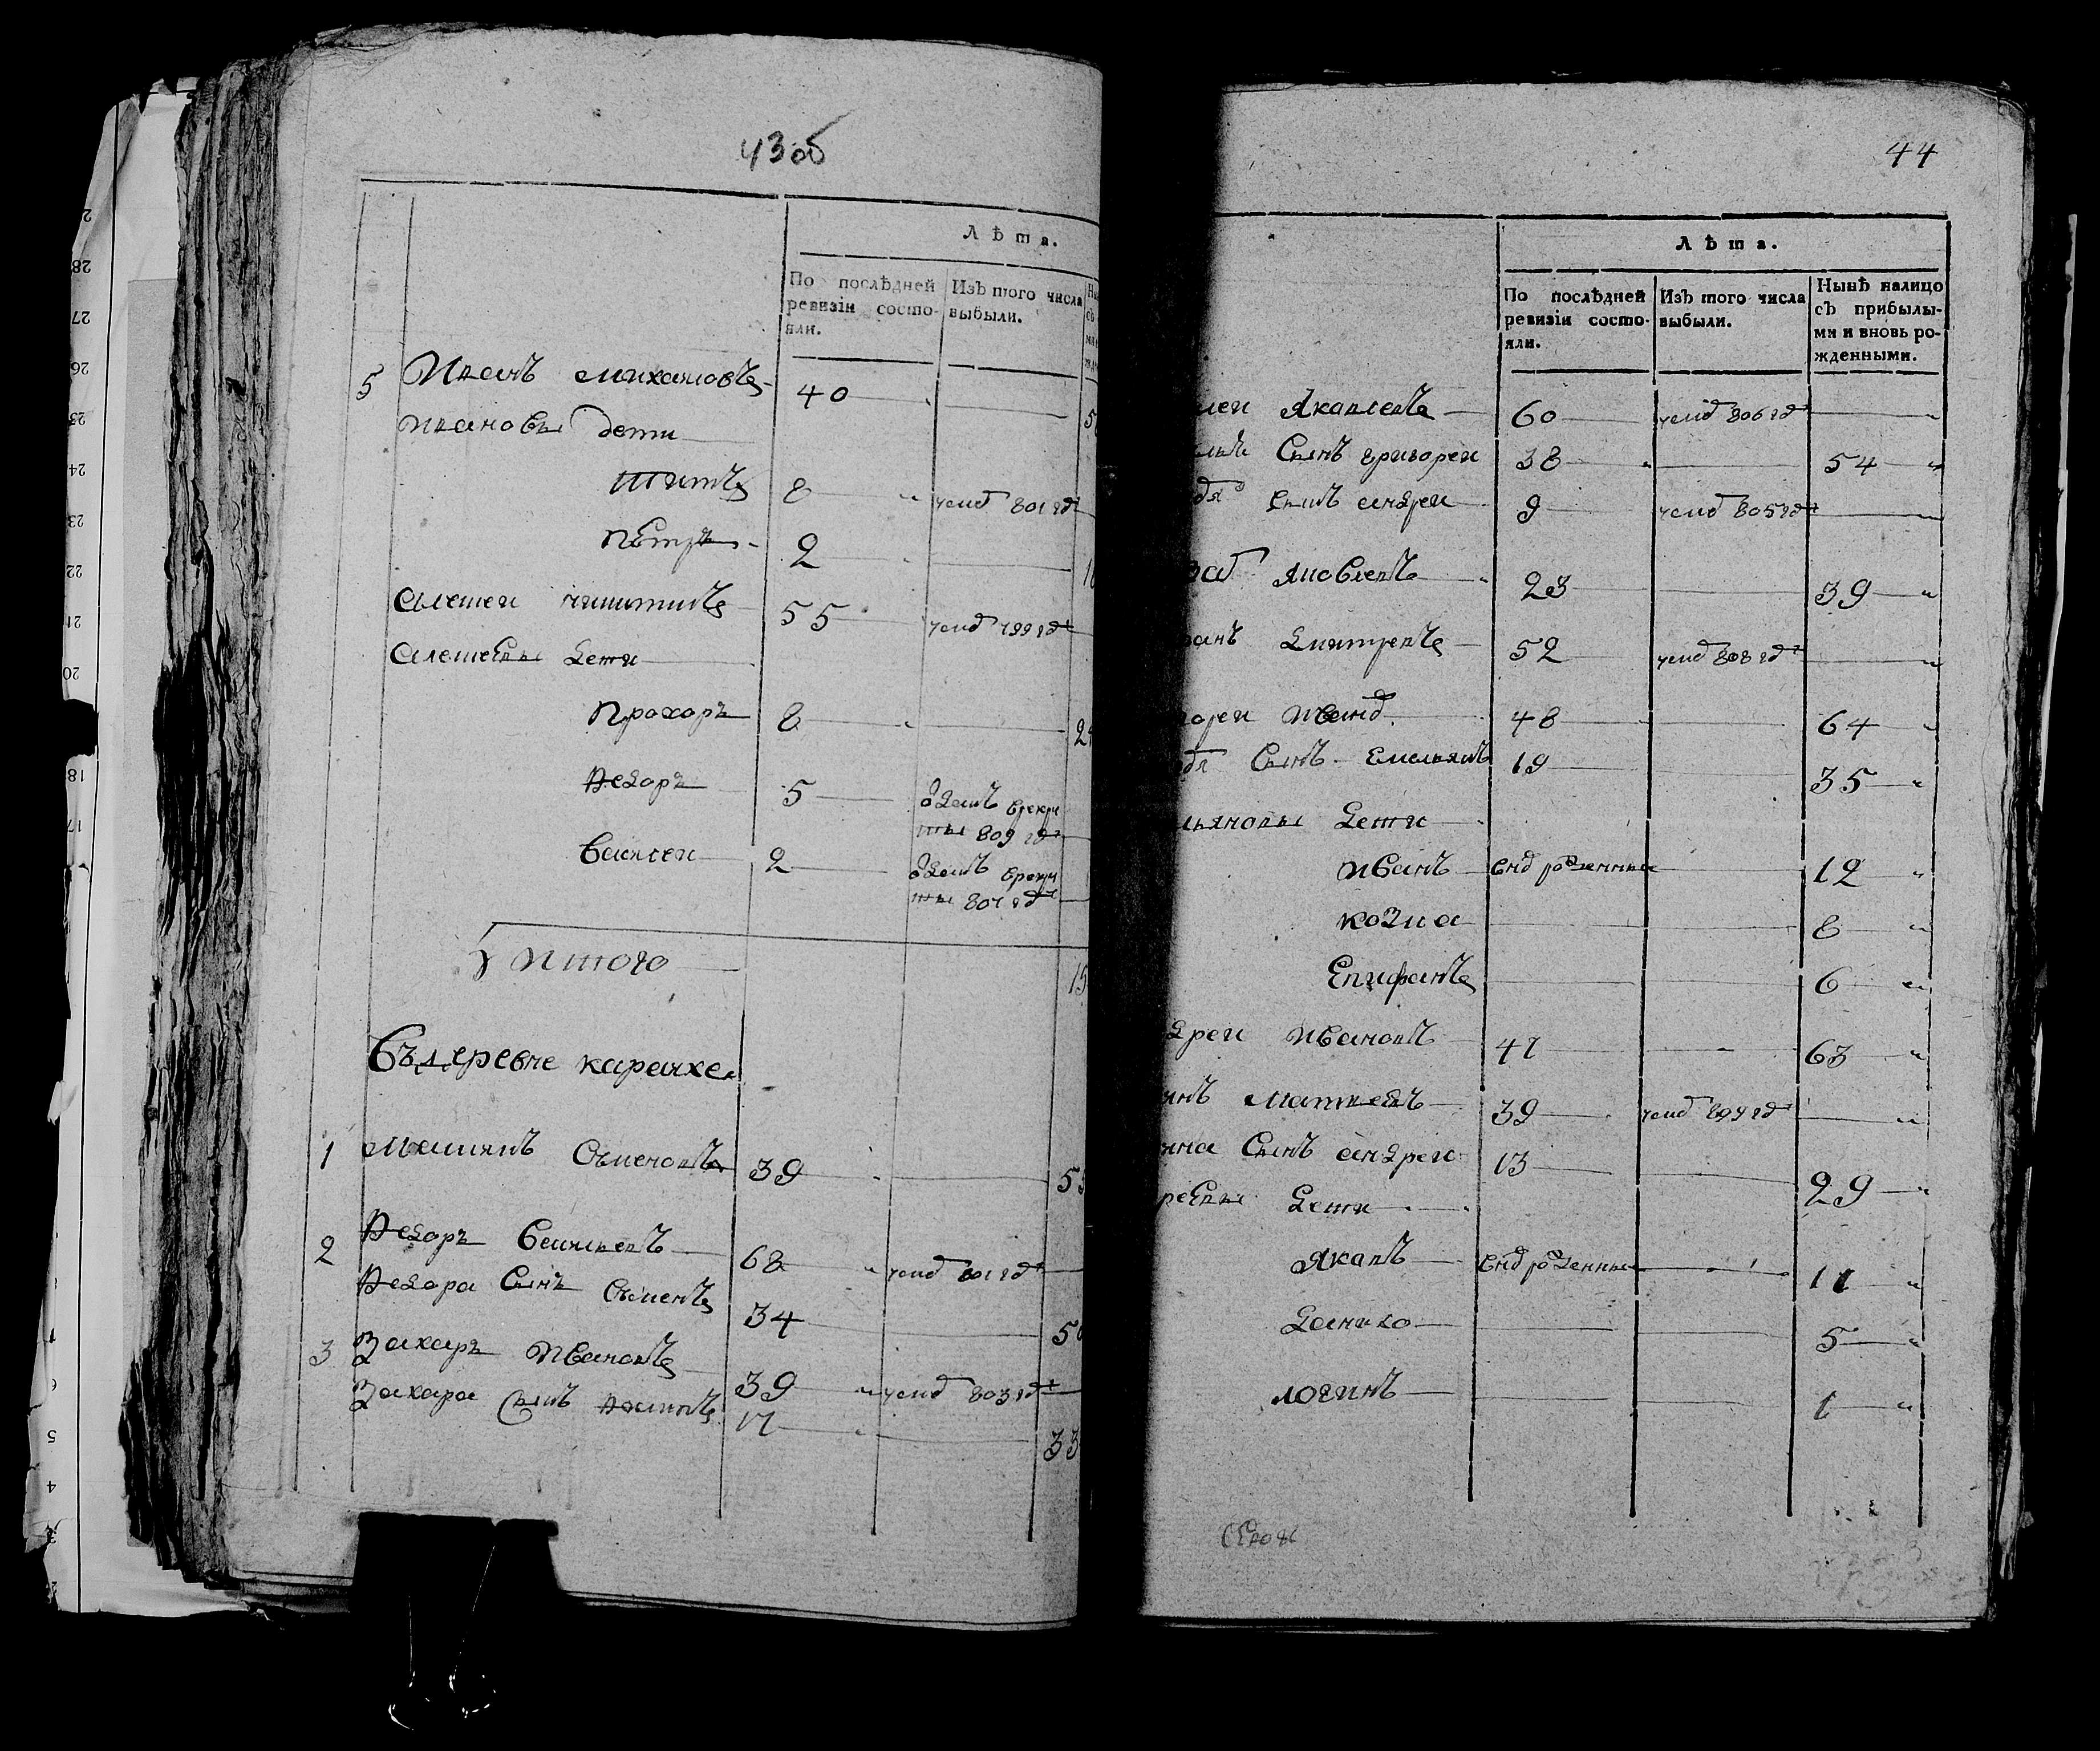 43об
Лѣта.
По послѣдней ревизіи состояли.
Изъ того числа выбыли.
5 Иванъ михаиловъ 40
Ивановы дети
титъ 8 умеръ 801 год
петръ 2
алексеи никитинъ 55 умеръ 799 год
алексеевы дети
прохоръ 8 2
федоръ 5 отданъ врекру
ты 809 год
василеи 2 отданъ врекру
ты 807 год
Итого 15
Въдеревне карачхе
1 Мартинъ Семеновъ 39 5
2 федоръ васильевъ 68 умеръ 801 год
федора сынъ Семенъ 34 5
3 Захаръ Ивановъ 39 умеръ 803 год
Захара сынъ 17 33
44
Лѣта.
По послѣдней ревизіи состояли.
Изъ того числа выбыли.
Нынѣ налицо съ прибылыми и вновь рожденными.
леи Яковлевъ 60 умеръ 806 год
сынъ григореи 38 54
сынъ андреи 9 умеръ 805 год
Яковлевъ 23 39
анъ дмитревъ 52 умеръ 808 год
ореи Иванов 48 64
сынъ Емельянъ 19 35
льяновы дети
Иванъ внов рожденные 12
козма 8
Епифанъ 6
дреи Ивановъ 47 63
инъ матвеевъ 39 умеръ год
ина сынъ андреи 13 29
реевы дети
Яковъ внов рожденные 11
данило 5
логинъ 1